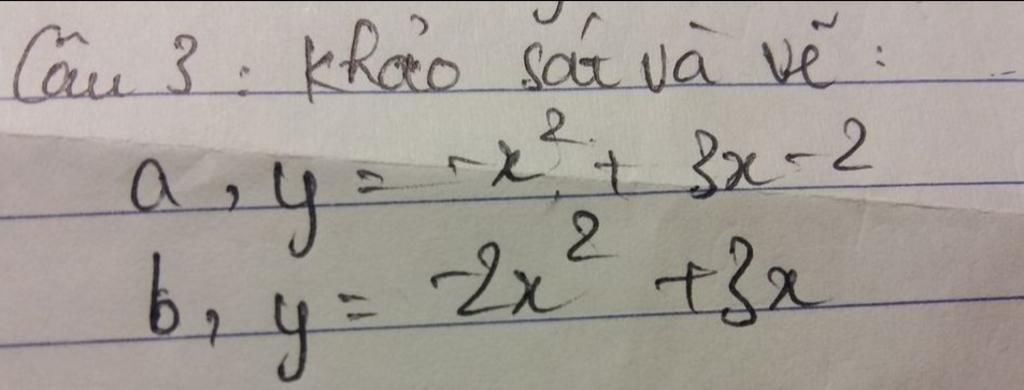 Câu 3 : Khảo sát và vẽ :
a, y = -x² + 3x - 2
b, y = -2x² + 3x